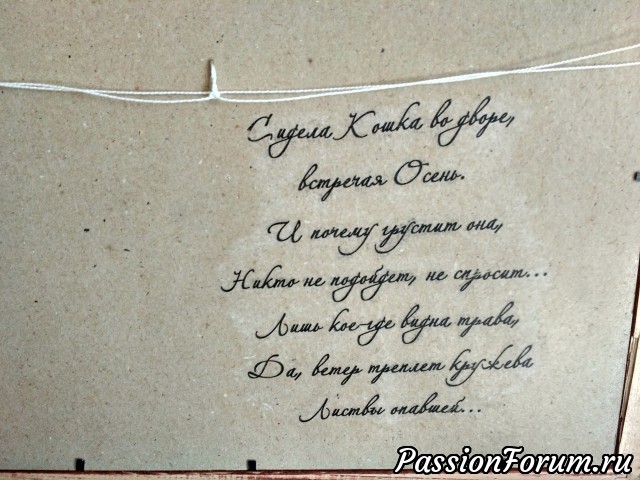 Сидела Кошка во дворе,
встречая Осень.
И почему грустит она,
Никто не подойдет, не спросит...
Лишь кое-где видна трава,
Да, ветер треплет кружева
Листвы опавшей...
PassionForum.ru